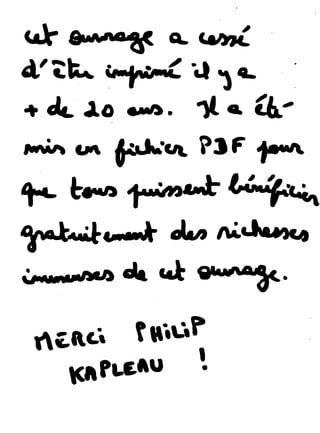 cet ouvrage a cessé
d'être imprimé il y a
+ de 20 ans. Il a été
mis en fichier PDF pour
que tous puissent bénéficier
gratuitement des richesses
immenses de cet ouvrage.
MERCI PHILIP
KAPLEAU !